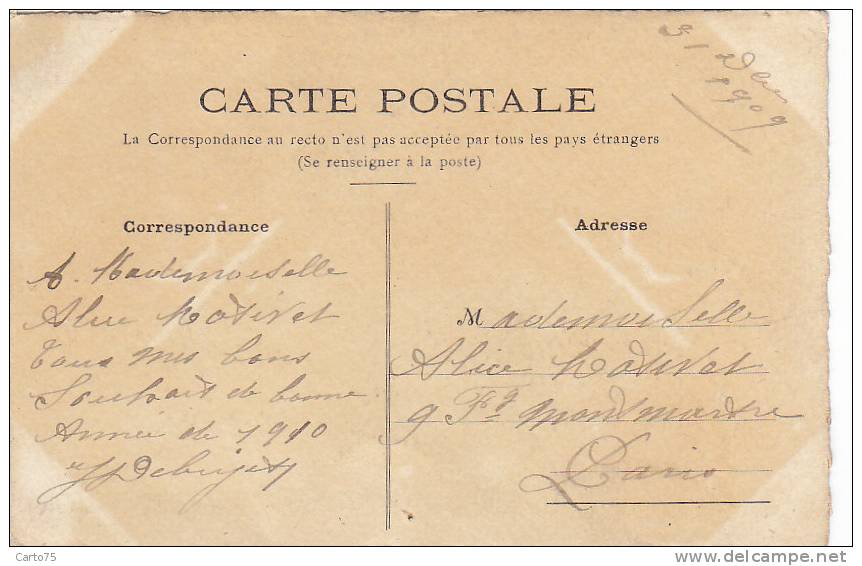 31 Dbre
1909
CARTE POSTALE
La Correspondance au recto n'est pas acceptée par tous les pays étrangers
(Se renseigner à la poste)
Correspondance
A. Mademoiselle
Alice
Tous mes bons
Souhait de bonne
Année de 1910
Adresse
Mademoiselle
Alice
9 Fg Montmartre
Paris
Carto75
http://www.delcampe.net